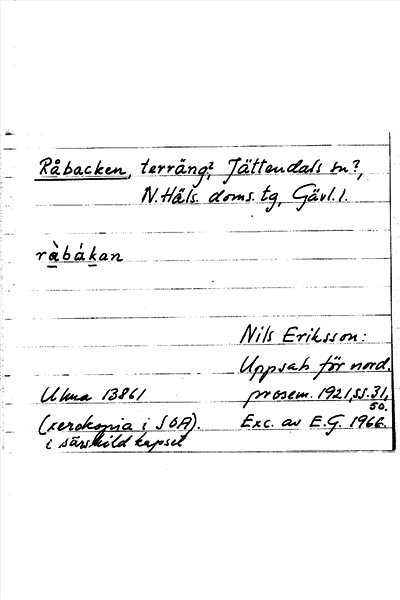 Råbacken, terräng?, Jättendals sn?,
N. Häls. doms. tg, Gävl. l.
ràbákan
Nils Eriksson:
Uppsats för nord.
prosem. 1921, ss. 31,
50.
Exc. av E.G. 1966.
Uluma 13861
(xerokopia i SOA).
i särskild kapsel